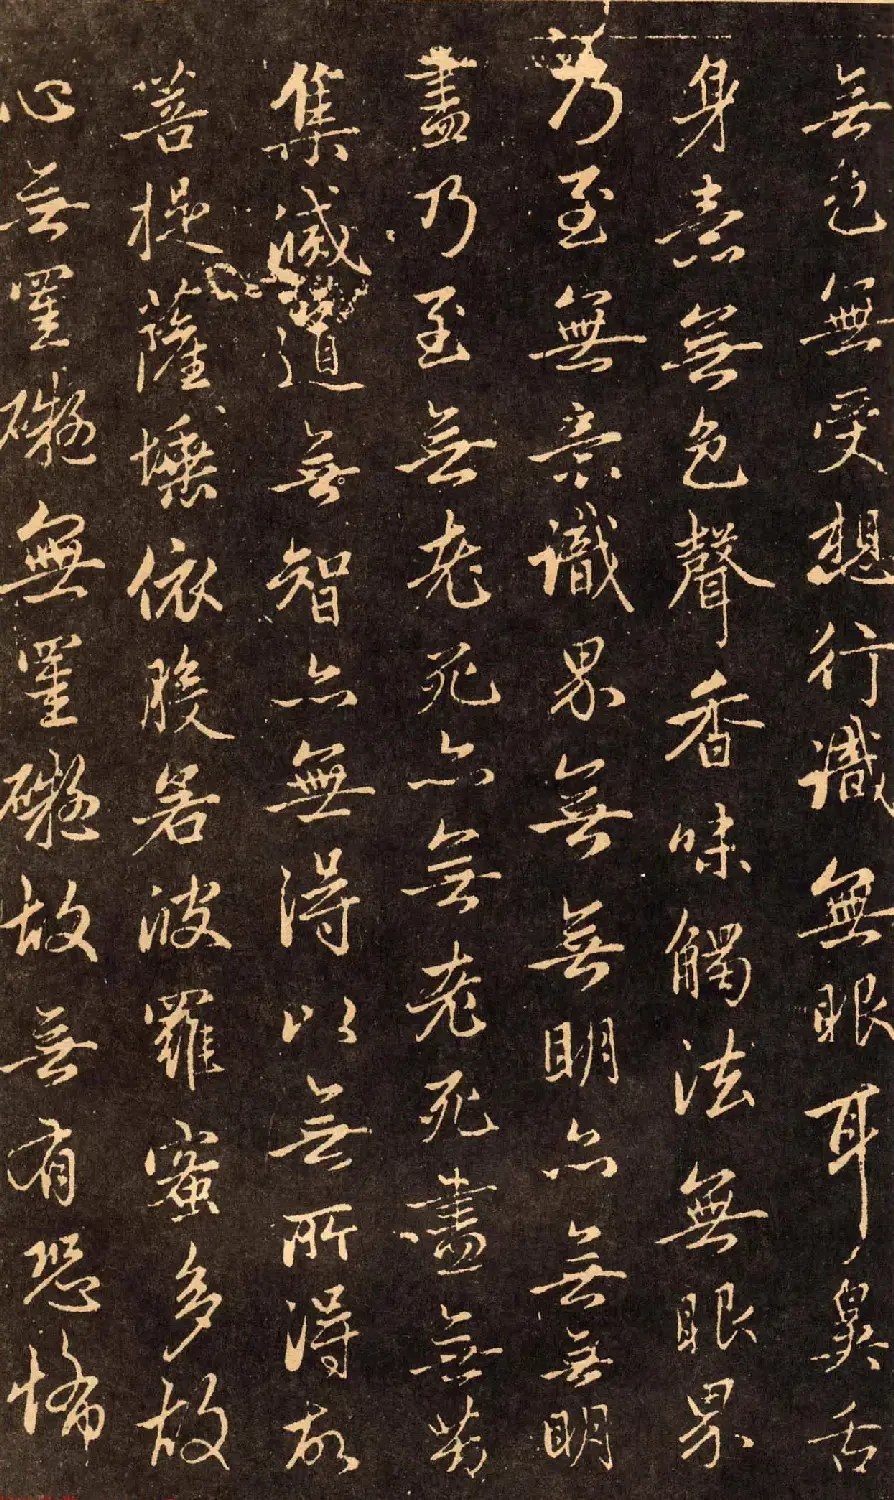 無色無受想行識無眼耳鼻舌
身意無色聲香味觸法無眼界
乃至無意識界無無明亦無無明
盡乃至無老死亦無老死盡無苦
集滅道無智亦無得以無所得故
菩提薩埵依般若波羅蜜多故
心無罣礙無罣礙故無有恐怖